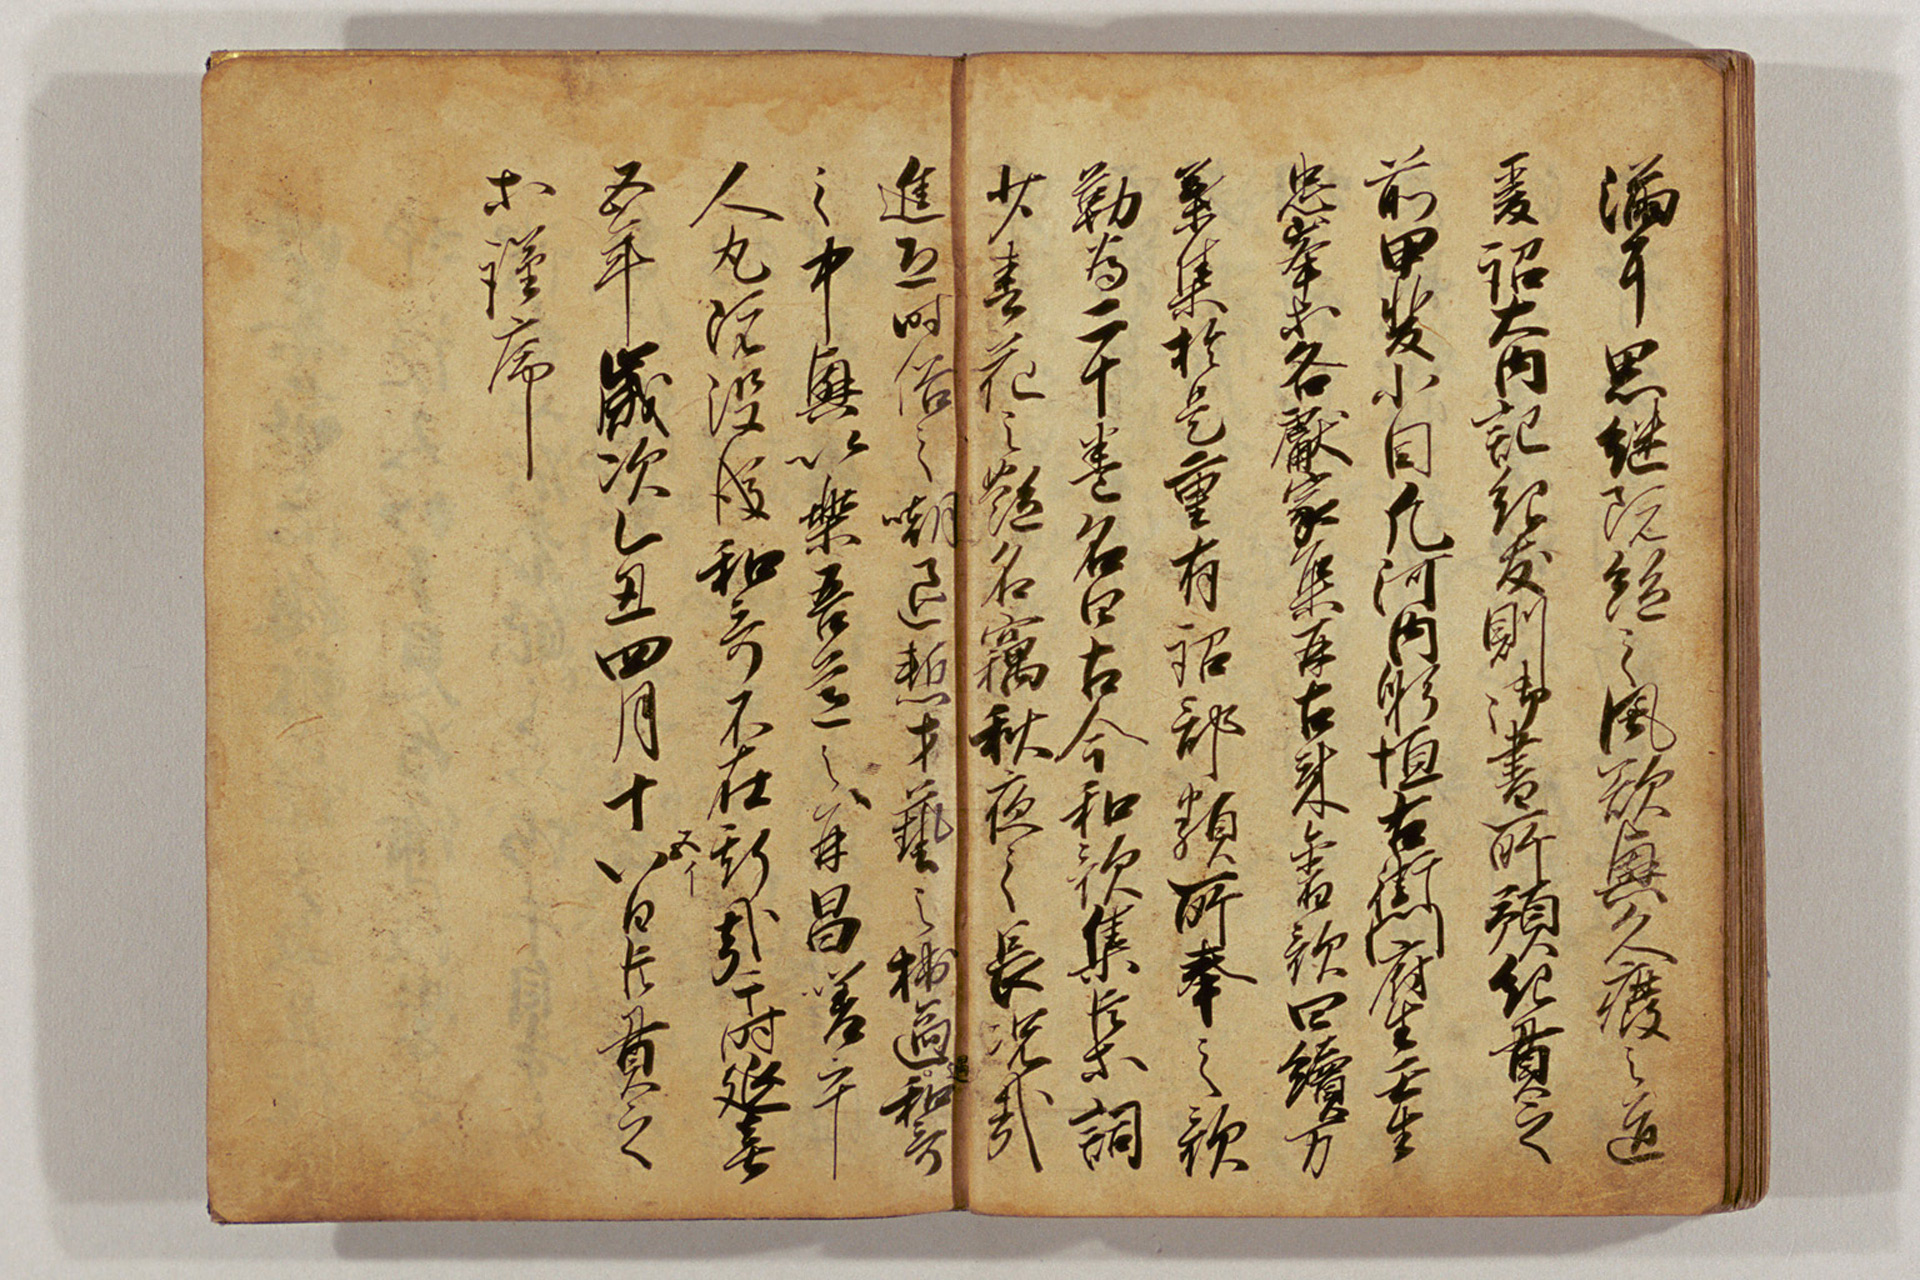 滿耳思継既絶之風欲興久廢之道
爰詔大内記紀友則御書所預紀貫之
前甲斐小目凡河内躬恒右衛門府生壬生
忠岑等各獻家集并古来舊歌曰續万
葉集於是重有詔部類所奉之歌
勒為二十巻名曰古今和歌集臣等詞
少春花之艶名竊秋夜之長况哉
進恐時俗之嘲退慙才藝之拙適和哥
遇
之中興以樂吾道之再昌嗟乎
人丸既没後和哥不在斯哉于時延喜
五年歳次乙丑四月十八日臣貫之
五イ
等謹序